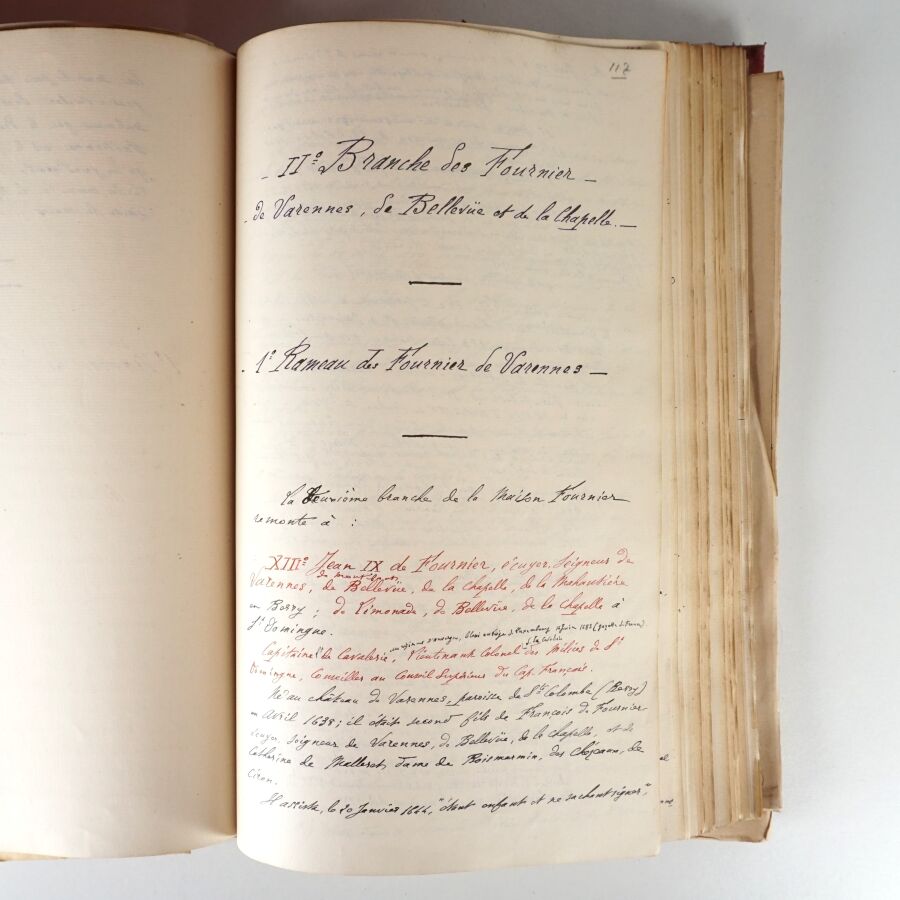 117
– IIe Branche des Fournier –
de Varennes, de Bellevüe et de la Chapelle. –
1e Rameau des Fournier de Varennes –
La deuxième branche de la Maison Fournier
remonte à :
XIIIe Jean IX de Fournier, écuyer, Seigneur de
Varennes, de Bellevüe, de la Chapelle, de la
en Berry ; de Limonade, de Bellevüe, de la Chapelle à
St Domingue.
Capitaine de Cavalerie, Lieutenant Colonel des Milices de St
Domingue, Conseiller au Conseil Supérieur du Cap Français.
Né au château de Varennes, paroisse de Ste Colombe (Berry)
en Avril 1638 ; il était second fils de François de Fournier
écuyer, Seigneur de Varennes, de Bellevüe, de la Chapelle, et de
Catherine de Malleret, dame de Boismarmin, des Chézeaux, de
Ciron.
Il assista, le 20 Janvier 1644, "étant enfant et ne sachant signer",